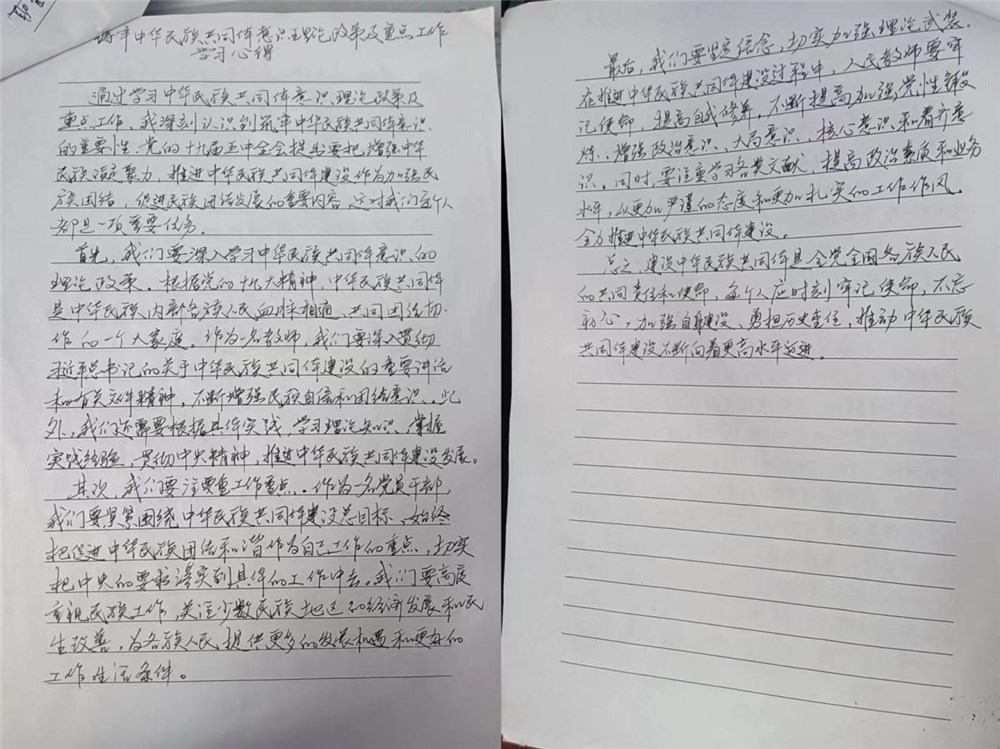 铸牢中华民族共同体意识理论政策及重点工作
学习心得
通过学习中华民族共同体意识理论政策及
重点工作，我深刻认识到筑牢中华民族共同体意识
的重要性。党的十九届五中全会提出要把增强中华
民族凝聚力，推进中华民族共同体建设作为加强民
族团结，促进民族团结发展的重要内容，这对我们每个人
都是一项重要任务。
首先，我们要深入学习中华民族共同体意识的
理论政策。根据党的十九大精神，中华民族共同体
是中华民族内部各族人民血脉相通，共同团结协
作的一个大家庭。作为一名教师，我们要深入贯彻
习近平总书记的关于中华民族共同体建设的重要讲话
和有关文件精神，不断增强民族自信和团结意识。此
外，我们还需要根据具体实践，学习理论知识，掌握
实践经验，贯彻中央精神，推进中华民族共同体建设发展。
其次，我们要注重工作重点。作为一名党员干部
我们要紧紧围绕中华民族共同体建设总目标，始终
把促进中华民族团结和谐作为自己工作的重点，切实
把中央的要求落实到具体的工作中去。我们要高度
重视民族工作，关注少数民族地区的经济发展和民
生改善，为各族人民提供更多的发展机遇和更好的
工作生活条件。
最后，我们要坚定信念，切实加强理论武装。
在推进中华民族共同体建设过程中，人民教师要牢
记使命，提高自我修养，不断提高加强党性锻
炼、增强政治意识、大局意识、核心意识和看齐意
识。同时，要注重学习各类文献，提高政治素质和业务
水平，以更加严谨的态度和更加扎实的工作作风，
全力推进中华民族共同体建设。
总之，建设中华民族共同体是全党全国各族人民
的共同责任和使命，每个人应时刻牢记使命，不忘
初心，加强自身建设，勇担历史重任，推动中华民族
共同体建设不断向着更高水平迈进。